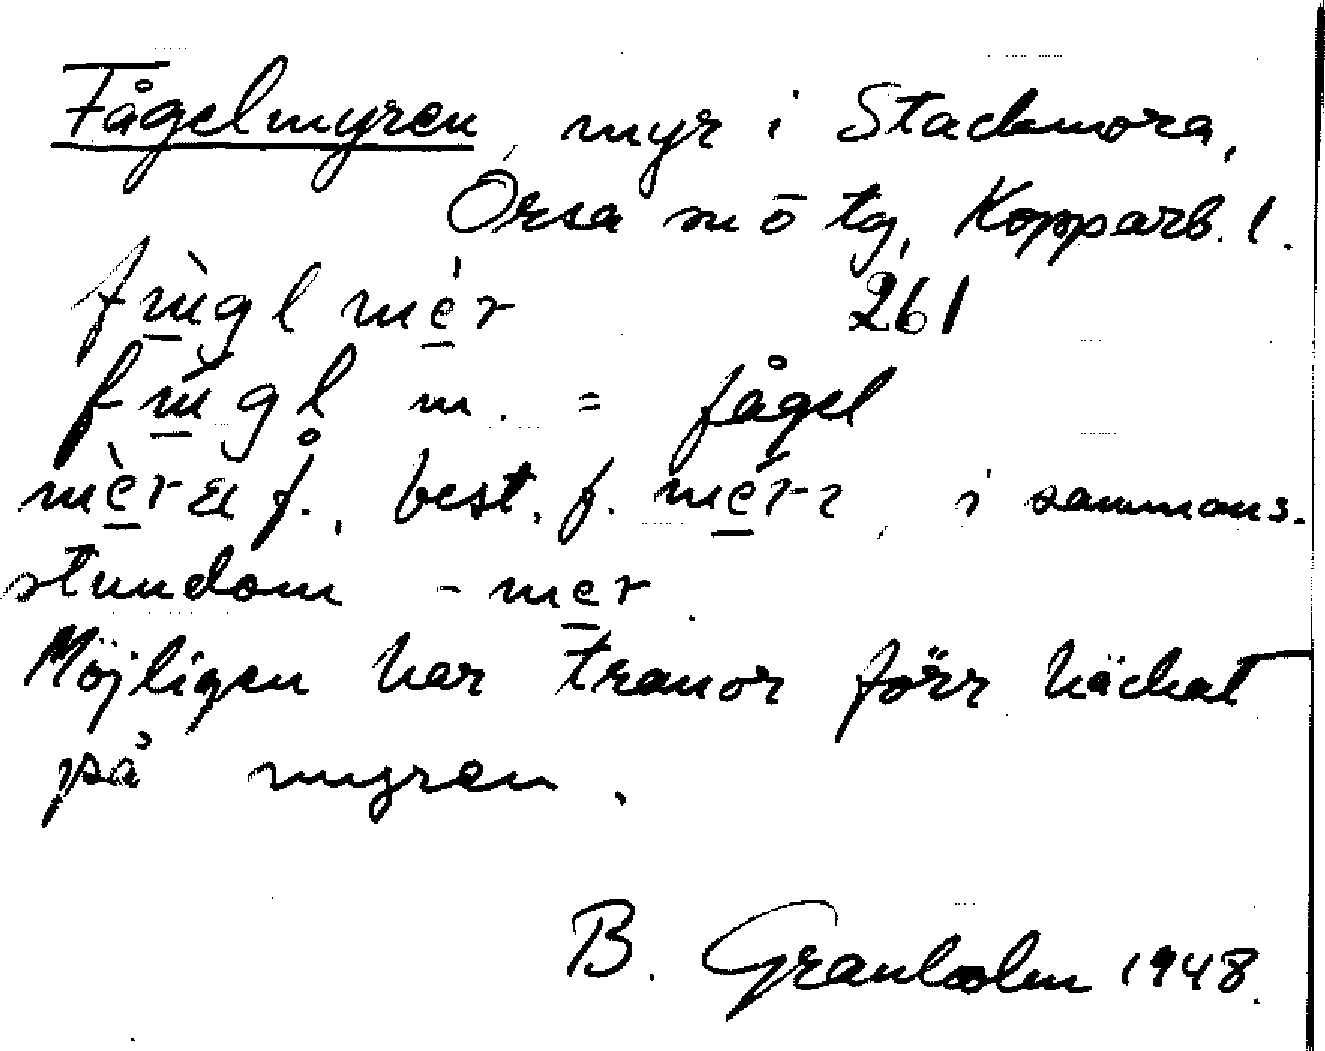 Fågelmyren, myr i Stackmora,
Orsa sn ö tg, Kopparb. l.
fùgl mèr 261
fùgl m. = fågel
f., best. f. i sammans.
stundom - mer.
Möjligen har tranor förr häckat
på myren.
B. Granholm 1948.